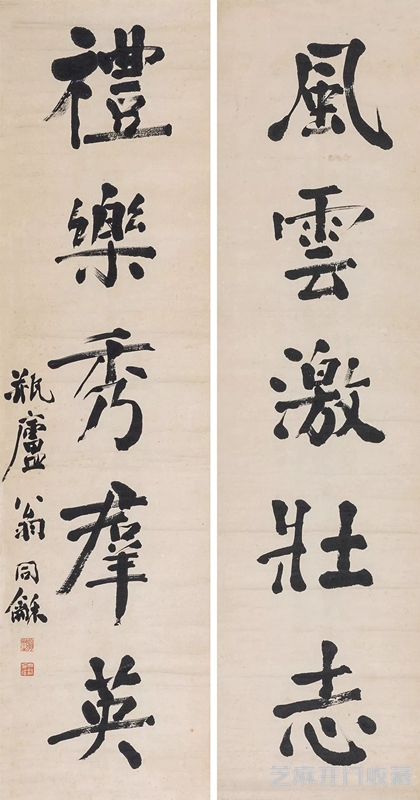 風雲激壯志
禮樂秀羣英
瓶廬翁同龢
芝麻开门收藏